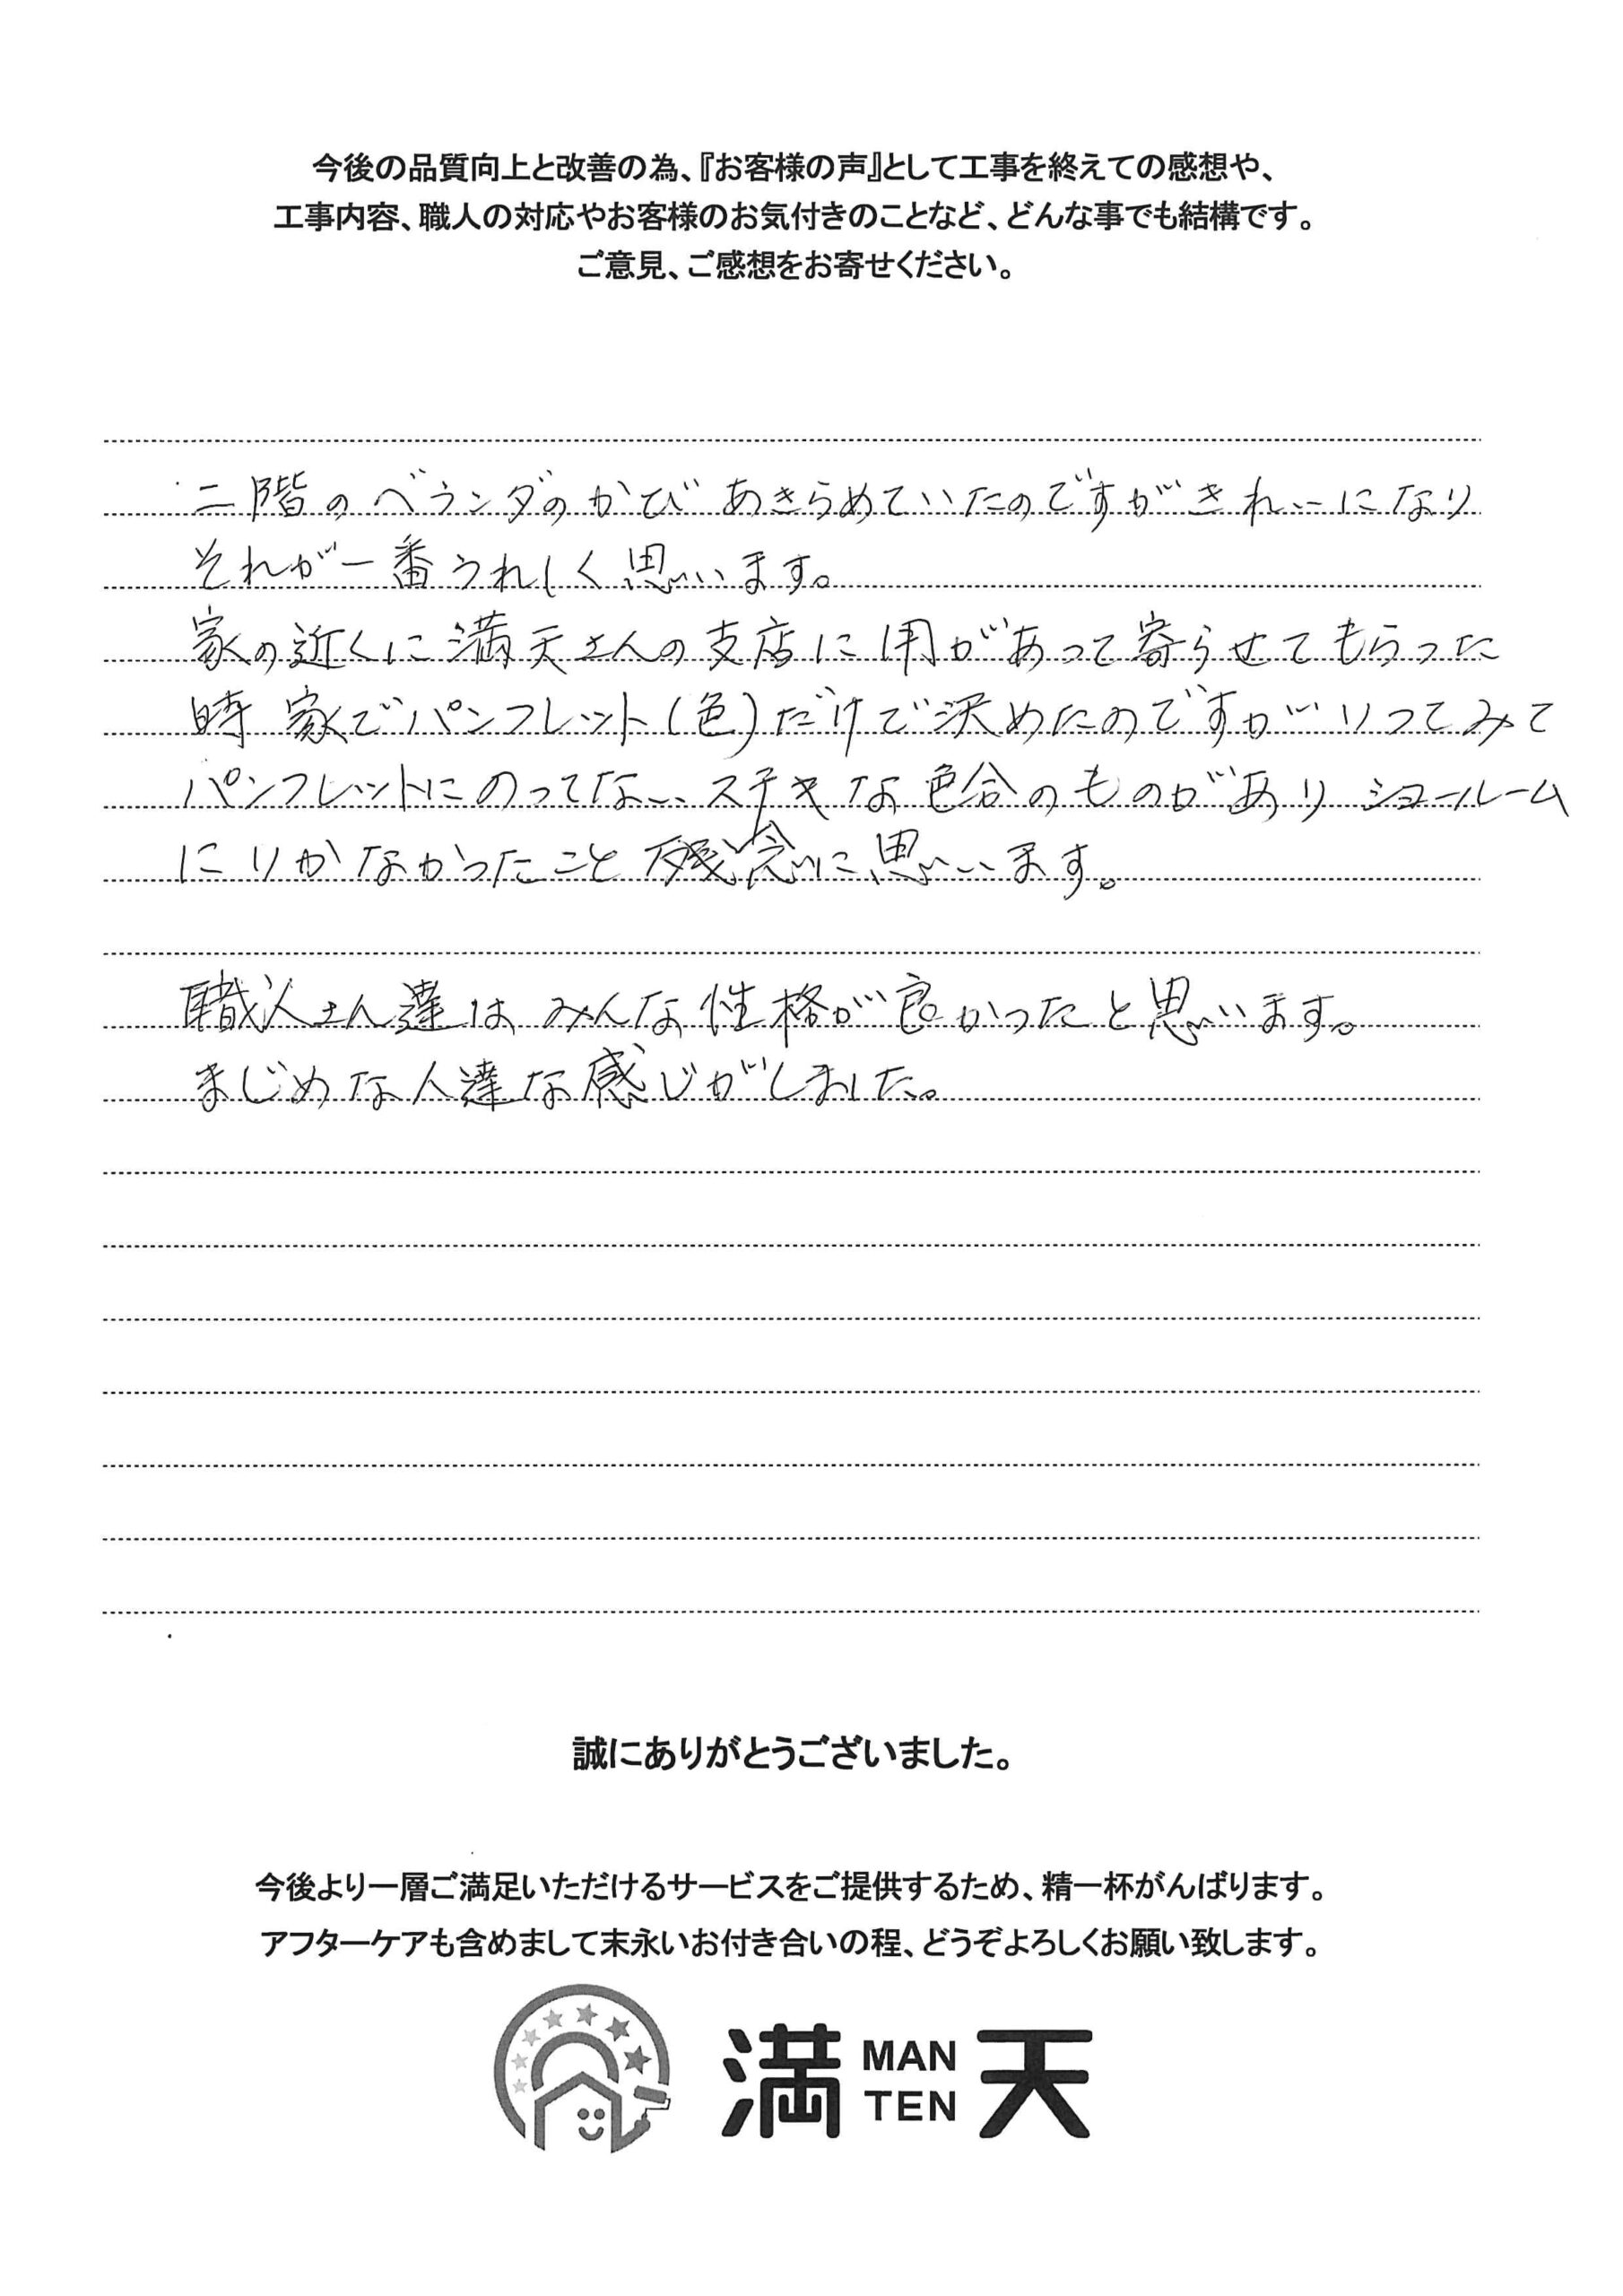 今後の品質向上と改善の為、『お客様の声』として工事を終えての感想や、
工事内容、職人の対応やお客様のお気付きのことなど、どんな事でも結構です。
ご意見、ご感想をお寄せください。
二階のベランダのかび あきらめていたのですがきれいになり
それが一番うれしく思います。
家の近くに満天さんの支店に用があって寄らせてもらった
時 家でパンフレット(色)だけで決めたのですがいってみて
パンフレットにのってないステキな色合のものがあり ショールーム
にいかなかったこと残念に思います。
職人さん達はみんな性格が良かったと思います。
まじめな人達な感じがしました。
誠にありがとうございました。
今後より一層ご満足いただけるサービスをご提供するため、精一杯がんばります。
アフターケアも含めまして末永いお付き合いの程、どうぞよろしくお願い致します。
満 MAN TEN 天